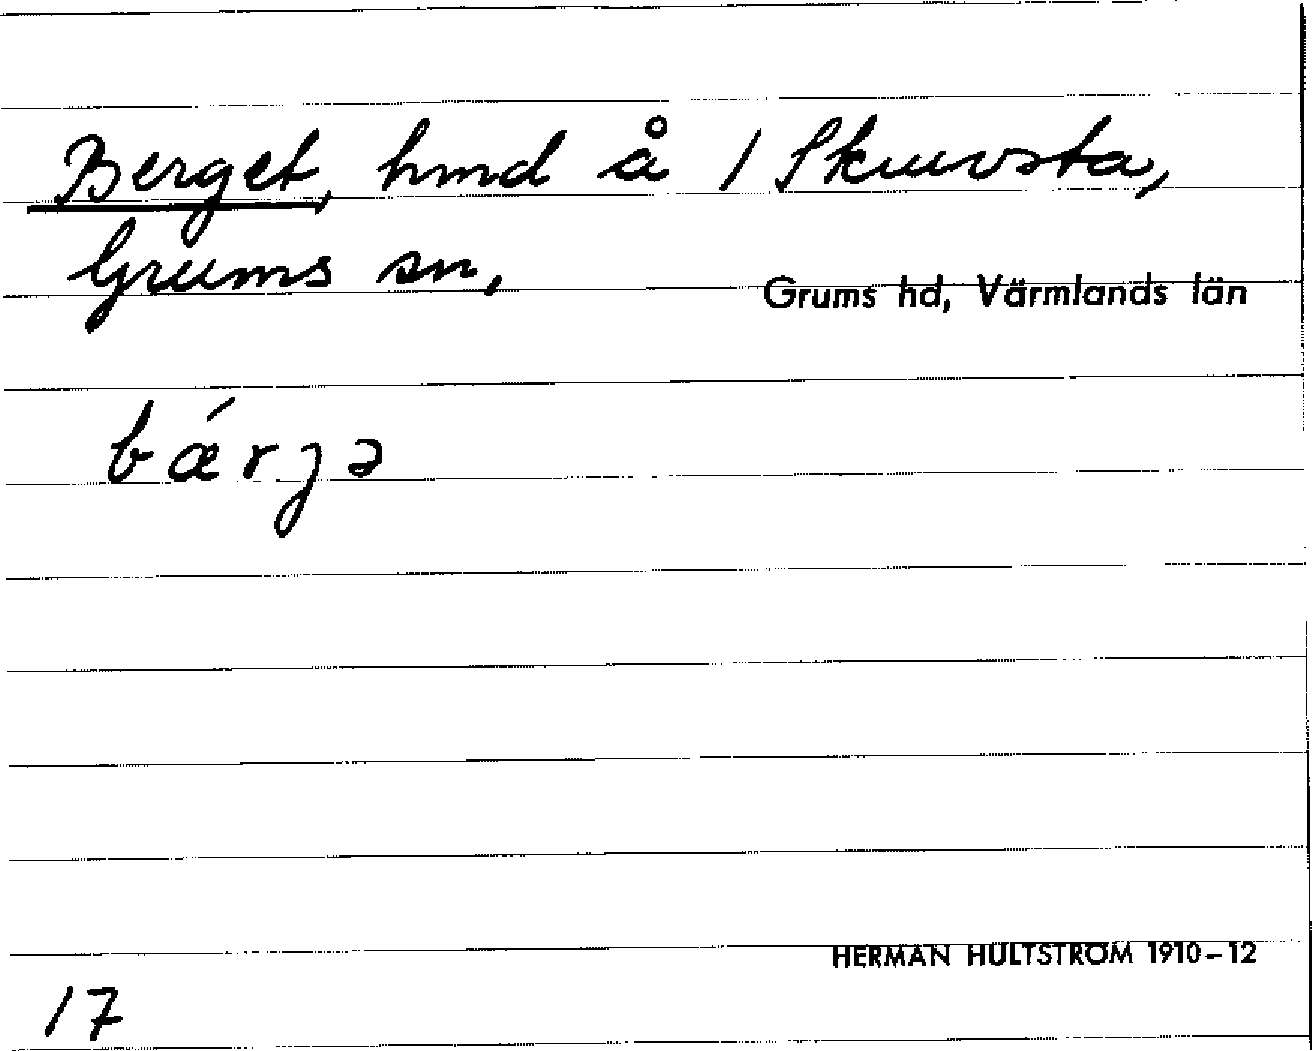 Berget, hmd å 1 Skruvsta,
Grums sn,
Grums hd, Värmlands län
bǽrjə
HERMAN HULTSTRÖM 1910–12
17